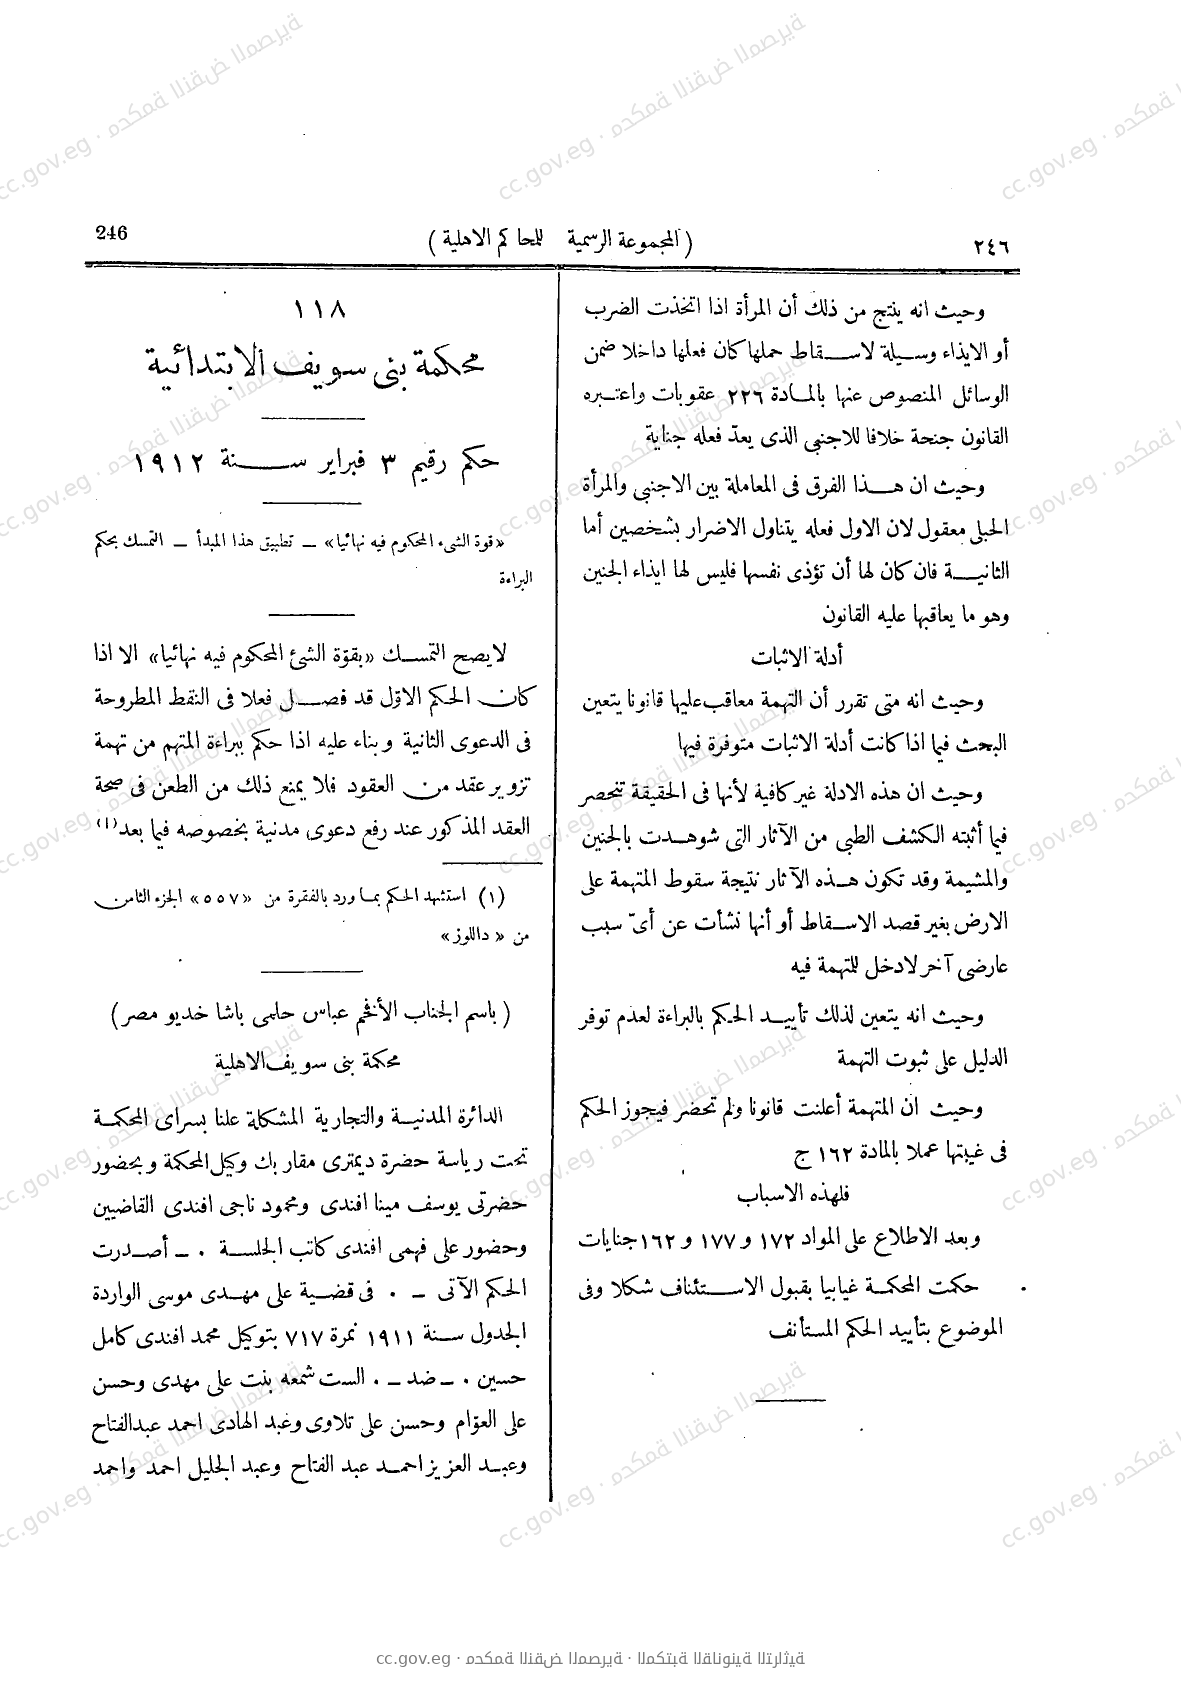 246
(المجموعة الرسمية للمحاكم الاهلية)
٢٤٦
وحيث انه ينتج من ذلك أن المرأة اذا اتخذت الضرب
أو الايذاء وسيلة لاسقاط حملها كان فعلها داخلا ضمن
الوسائل المنصوص عنها بالمادة ٢٢٦ عقوبات واعتبره
القانون جنحة خلافا للاجنبى الذى يعدّ فعله جناية
وحيث ان هذا الفرق فى المعاملة بين الاجنبى والمرأة
الحبلى معقول لان الاول فعله يتناول الاضرار بشخصين أما
الثانية فان كان لها أن تؤذى نفسها فليس لها ايذاء الجنين
وهو ما يعاقبها عليه القانون
أدلة الاثبات
وحيث انه متى تقرر أن التهمة معاقب عليها قانونا يتعين
البحث فيما اذا كانت أدلة الاثبات متوفرة فيها
وحيث ان هذه الادلة غير كافية لأنها فى الحقيقة تنحصر
فيما أثبته الكشف الطبى من الآثار التى شوهدت بالجنين
والمشيمة وقد تكون هذه الآثار نتيجة سقوط المتهمة على
الارض بغير قصد الاسقاط أو أنها نشأت عن أىّ سبب
عارضى آخر لادخل للمتهمة فيه
وحيث انه يتعين لذلك تأييد الحكم بالبراءة لعدم توفر
الدليل على ثبوت التهمة
وحيث ان المتهمة أعلنت قانونا ولم تحضر فيجوز الحكم
فى غيبتها عملا بالمادة ١٦٢ ج
فلهذه الاسباب
وبعد الاطلاع على المواد ١٧٢ و ١٧٧ و ١٦٢ جنايات
حكمت المحكمة غيابيا بقبول الاستئناف شكلا وفى
الموضوع بتأييد الحكم المستأنف
١١٨
محكمة بنى سويف الابتدائية
حكم رقيم ٣ فبراير سنة ١٩١٢
«قوة الشىء المحكوم فيه نهائيا» – تطبيق هذا المبدأ – التمسك بحكم
البراءة
لايصح التمسك «بقوّة الشئ المحكوم فيه نهائيا» الا اذا
كان الحكم الاوّل قد فصل فعلا فى النقط المطروحة
فى الدعوى الثانية وبناء عليه اذا حكم ببراءة المتهم من تهمة
تزوير عقد من العقود فلا يمنع ذلك من الطعن فى صحة
العقد المذكور عند رفع دعوى مدنية بخصوصه فيما بعد(١)
(١) استشهد الحكم بما ورد بالفقرة من «٥٥٧» الجزء الثامن
من «داللوز»
(باسم الجناب الأفخم عباس حلمى باشا خديو مصر)
محكمة بنى سويف الاهلية
الدائرة المدنية والتجارية المشكلة علنا بسراى المحكمة
تحت رياسة حضرة ديمترى مقار بك وكيل المحكمة وبحضور
حضرتى يوسف مينا افندى ومحمود ناجى افندى القاضيين
وحضور على فهمى افندى كاتب الجلسة . – أصدرت
الحكم الآتى – . فى قضية على مهدى موسى الواردة
الجدول سنة ١٩١١ نمرة ٧١٧ بتوكيل محمد افندى كامل
حسين . – ضد – . الست شمعه بنت على مهدى وحسن
على العوّام وحسن على تلاوى وعبد الهادى احمد عبدالفتاح
وعبد العزيز احمد عبد الفتاح وعبد الجليل احمد واحمد
cc.gov.eg · محكمة النقض المصرية · المكتبة القانونية التراثية